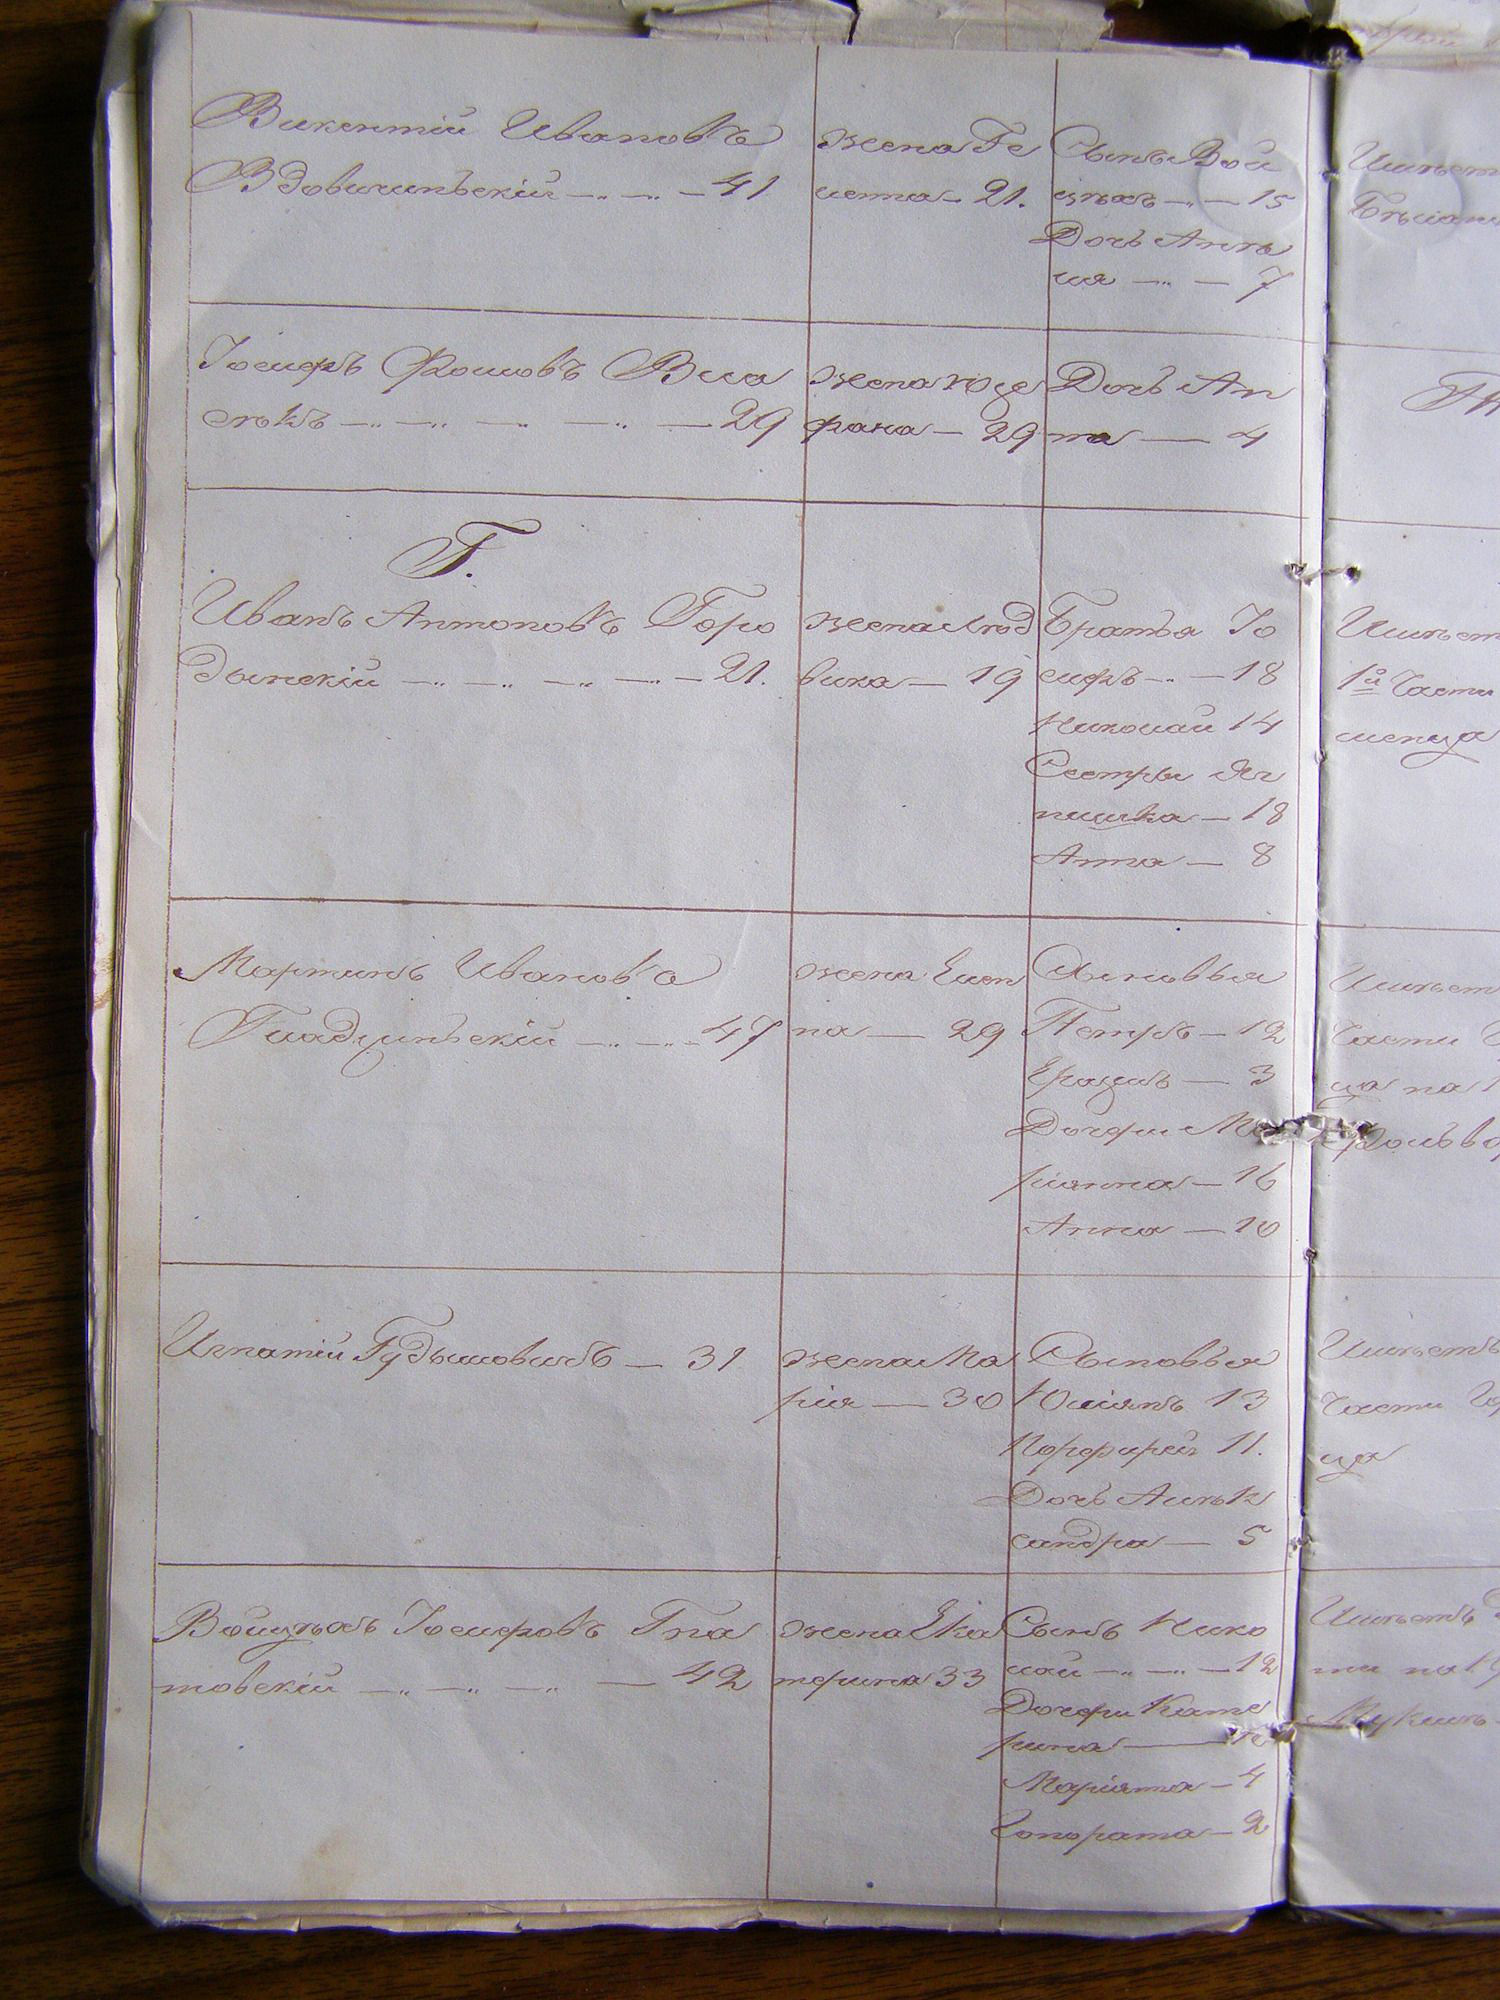 Викентій Ивановъ
Вдовичиньскій — 41
жена Ге
лена — 21.
Сынъ Вой
цѣхъ — 15
Дочь Анѣ
ля — 7
Іосифъ Фомовъ Вла
— 29
жена Юзе
фана — 29
Дочь Ан
на — 4
Г.
Иванъ Антоновъ Горо
дынскій — 21.
жена Люд
вика — 19
Братья Іо
сифъ — 18
Николай 14
Сестры Яг
нишка — 18
Анна — 8
1й Части
Мартинъ Ивановъ
Гладзиньскій — 47
жена Елен
на — 29
Сыновья
Петръ — 12
Еразмъ — 3
Дочери Ма
ріянна — 16
Анна — 10
Части
ца на
Игнатій Гудымовичъ — 31
жена Ма
рія — 30
Сыновья
Юліянъ 13
Порфирій 11.
Дочь Алек
сандра — 5
Имѣетъ
Части
ца
Войцѣхъ Іосифовъ Гна
товскій — 42
жена Ека
терина 33
Сынъ Нико
лай — 12
Дочери Кате
рина —
Маріянна — 4
Гонората — 2
Имѣетъ
ти на